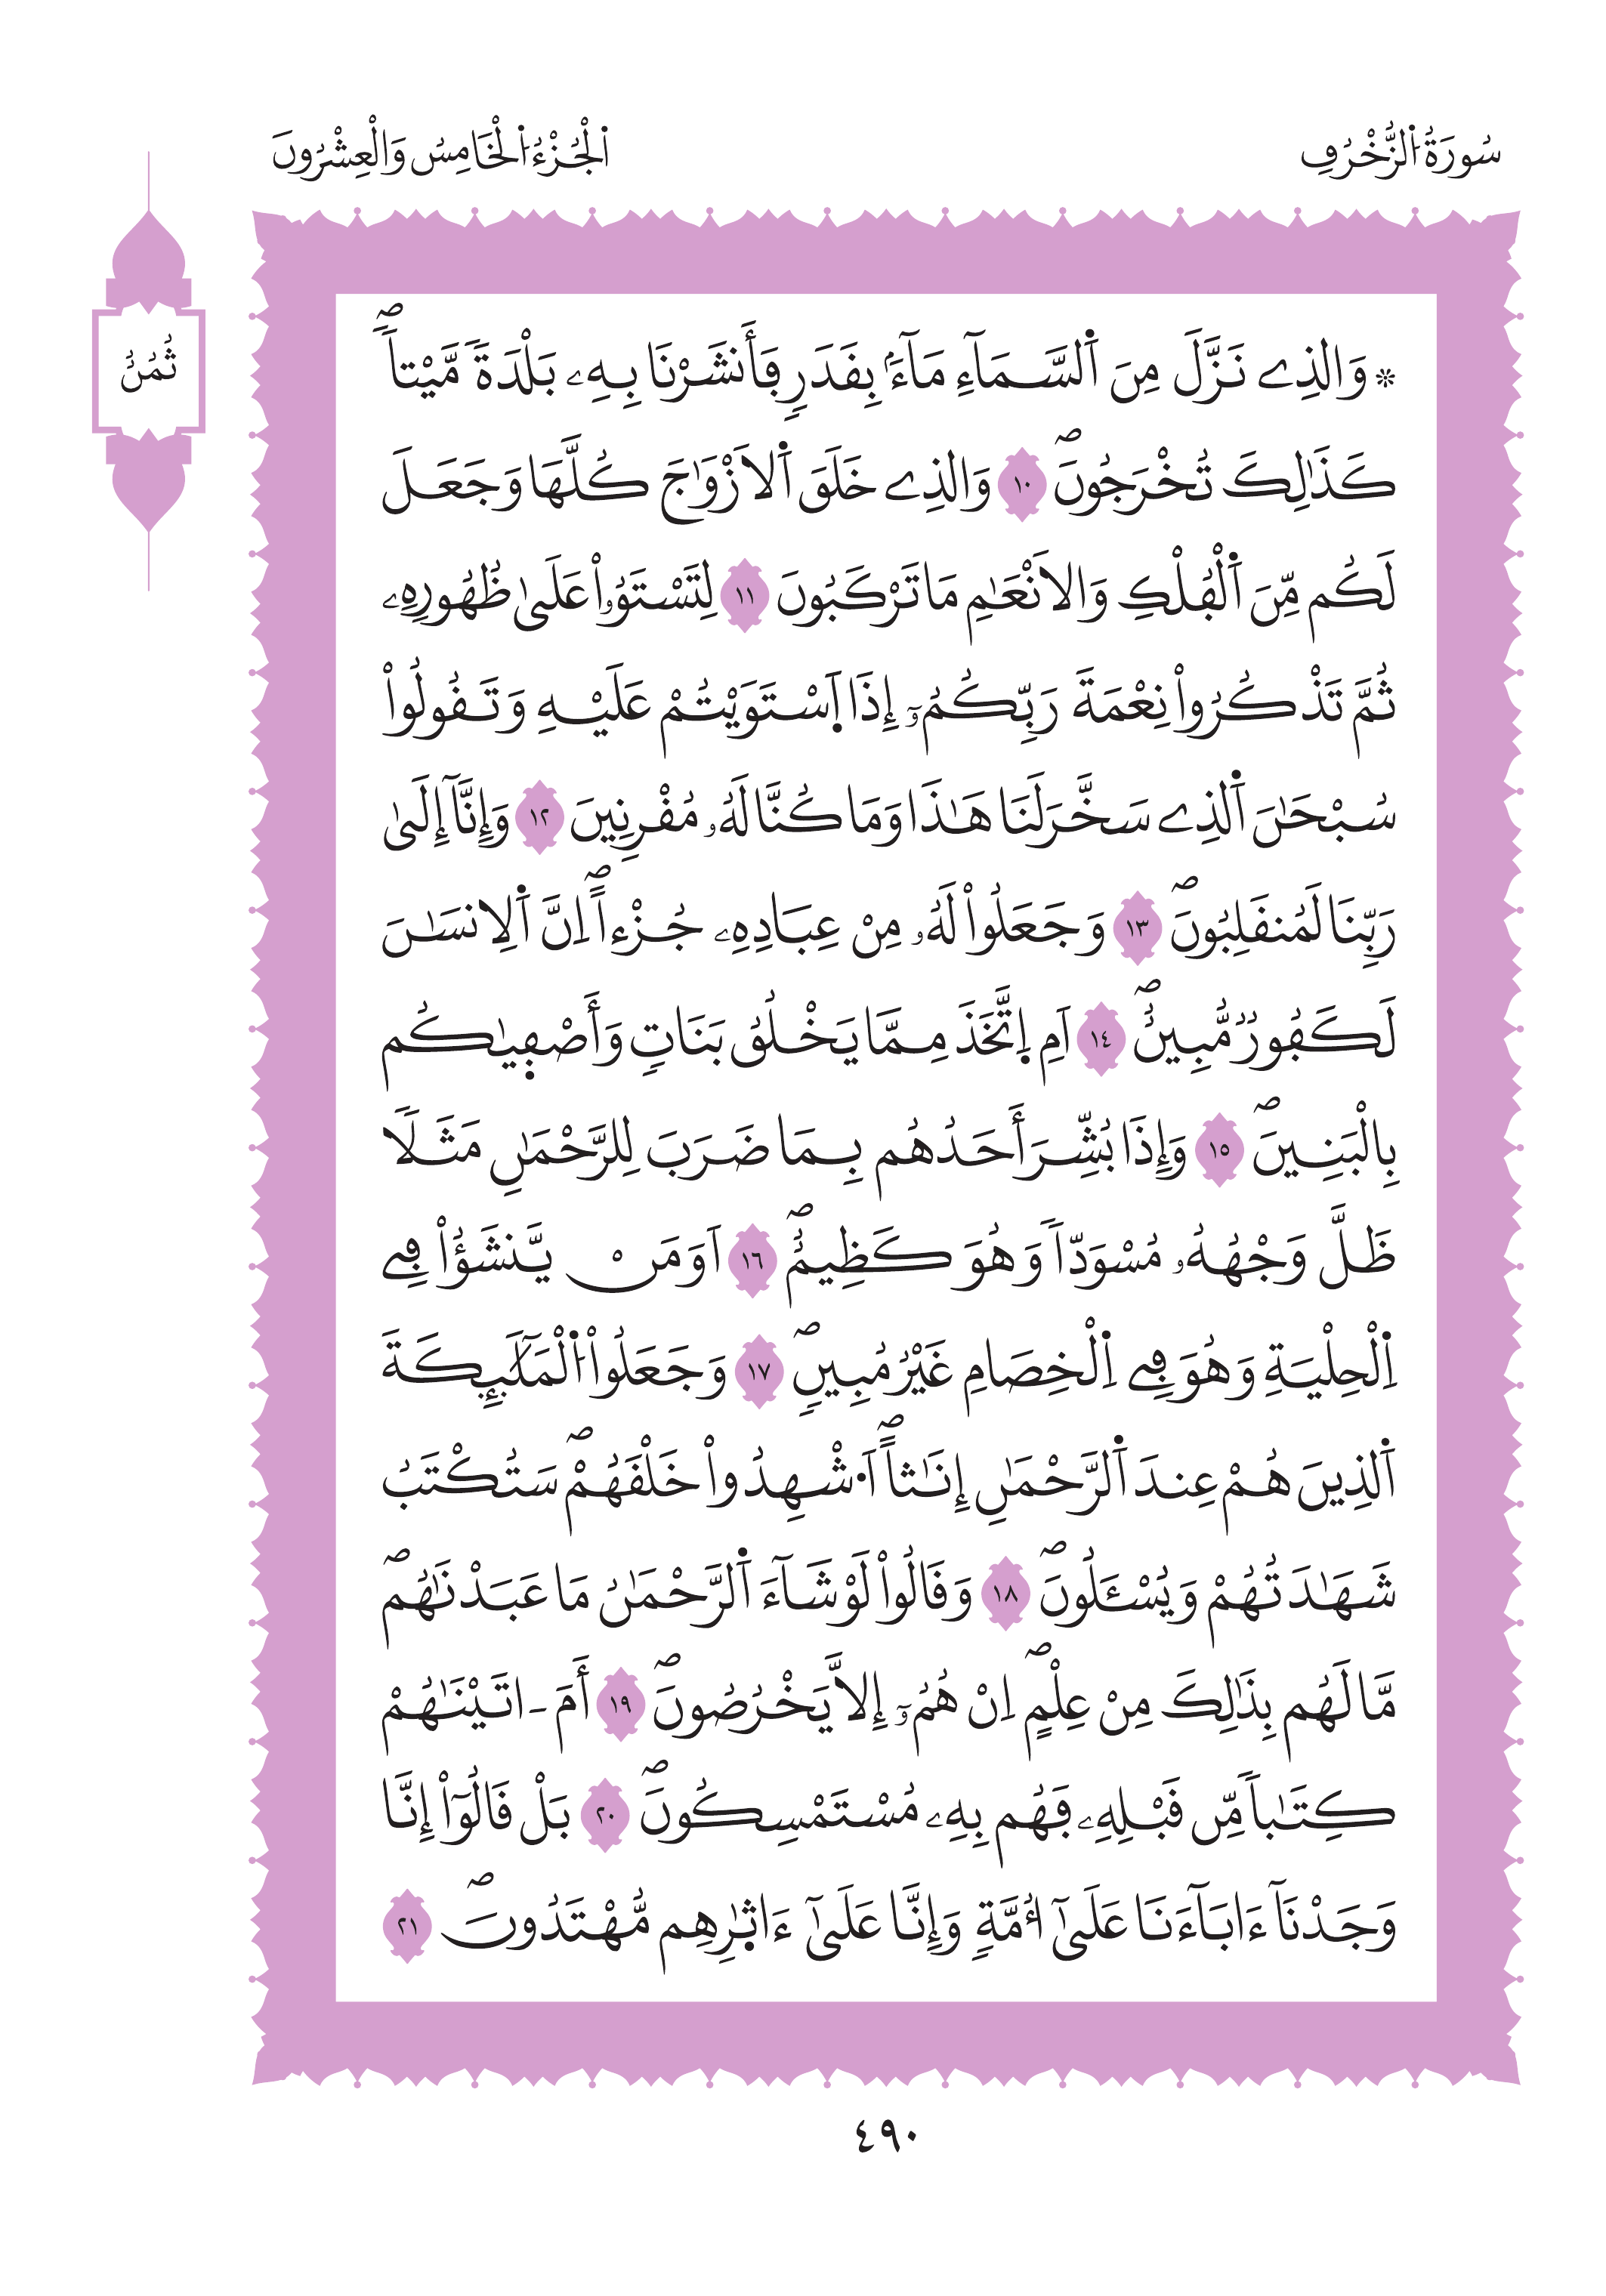 سُورَةُ اُ۬لزُّخْرُفِ
اَ۬لْجُزْءُ اُ۬لْخَامِسُ وَالْعِشْرُونَ
ثُمُنُ
۞ وَالذِے نَزَّلَ مِنَ اَ۬لسَّمَآءِ مَآءَۢ بِقَدَرٖ فَأَنشَرْنَا بِهِۦ بَلْدَةٗ مَّيْتاٗۖ
كَذَٰلِكَ تُخْرَجُونَۖ ١٠ وَالذِے خَلَقَ اَ۬لَازْوَٰجَ كُلَّهَا وَجَعَلَ
لَكُم مِّنَ اَ۬لْفُلْكِ وَالَانْعَٰمِ مَا تَرْكَبُونَ ١١ لِتَسْتَوُۥاْ عَلَىٰ ظُهُورِهِۦ
ثُمَّ تَذْكُرُواْ نِعْمَةَ رَبِّكُمُۥٓ إِذَا اَ۪سْتَوَيْتُمْ عَلَيْهِ وَتَقُولُواْ
سُبْحَٰنَ اَ۬لذِے سَخَّرَ لَنَا هَٰذَا وَمَا كُنَّا لَهُۥ مُقْرِنِينَ ١٢ وَإِنَّآ إِلَىٰ
رَبِّنَا لَمُنقَلِبُونَۖ ١٣ وَجَعَلُواْ لَهُۥ مِنْ عِبَادِهِۦ جُزْءاًۖ اِنَّ اَ۬لِانسَٰنَ
لَكَفُورٞ مُّبِينٌۖ ١٤ اَمِ اِ۪تَّخَذَ مِمَّا يَخْلُقُ بَنَاتٖ وَأَصْف۪يٰكُم
بِالْبَنِينَۖ ١٥ وَإِذَا بُشِّرَ أَحَدُهُم بِمَا ضَرَبَ لِلرَّحْمَٰنِ مَثَلٗا
ظَلَّ وَجْهُهُۥ مُسْوَدّاٗ وَهُوَ كَظِيمٌۖ ١٦ اَوَمَنْ يَّنشَؤُاْ فِے
اِ۬لْحِلْيَةِ وَهُوَ فِے اِ۬لْخِصَامِ غَيْرُ مُبِينٖۖ ١٧ وَجَعَلُواْ اُ۬لْمَلَٰٓئِكَةَ
اَ۬لذِينَ هُمْ عِندَ اَ۬لرَّحْمَٰنِ إِنَٰثاًۖ اَ۟شْهِدُواْ خَلْقَهُمْۖ سَتُكْتَبُ
شَهَٰدَتُهُمْ وَيُسْـَٔلُونَۖ ١٨ وَقَالُواْ لَوْ شَآءَ اَ۬لرَّحْمَٰنُ مَا عَبَدْنَٰهُمۖ
مَّا لَهُم بِذَٰلِكَ مِنْ عِلْمٍۖ اِنْ هُمُۥٓ إِلَّا يَخْرُصُونَۖ ١٩ أَمَ ـ اتَيْنَٰهُمْ
كِتَٰباٗ مِّن قَبْلِهِۦ فَهُم بِهِۦ مُسْتَمْسِكُونَۖ ٢٠ بَلْ قَالُوٓاْ إِنَّا
وَجَدْنَآ ءَابَآءَنَا عَلَىٰٓ أُمَّةٖ وَإِنَّا عَلَىٰٓ ءَاثٰ۪رِهِم مُّهْتَدُونَۖ ٢١
٤٩٠